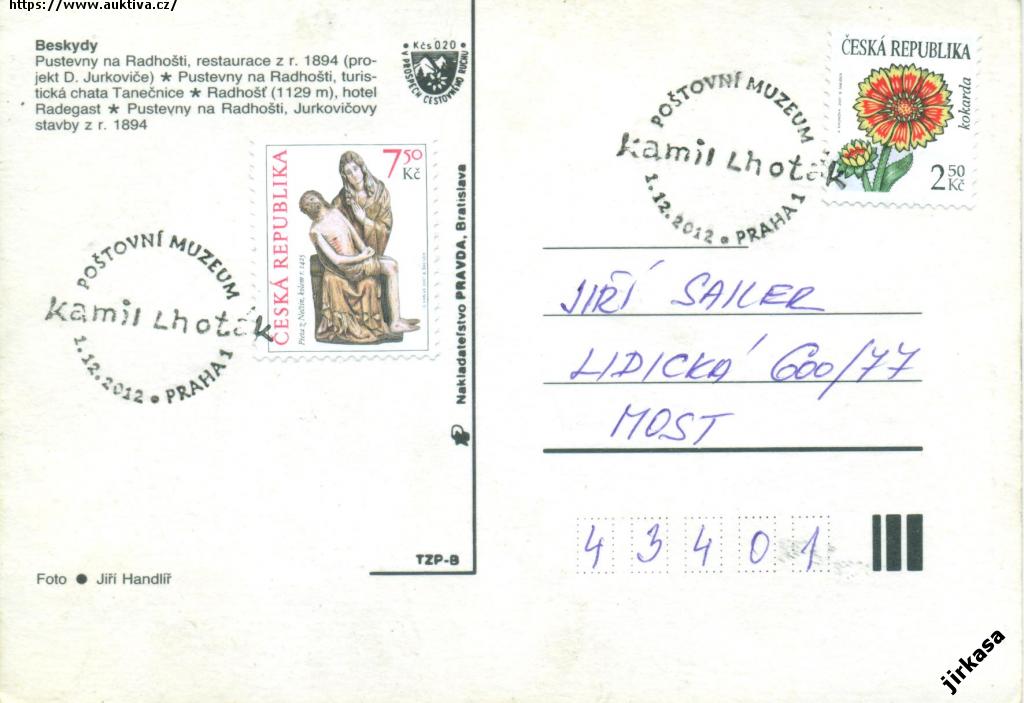 https://www.auktiva.cz/
Beskydy
Pustevny na Radhošti, restaurace z r. 1894 (pro-
jekt D. Jurkoviče) ★ Pustevny na Radhošti, turis-
tická chata Tanečnice ★ Radhošť (1129 m), hotel
Radegast ★ Pustevny na Radhošti, Jurkovičovy
stavby z r. 1894
Kčs 0.20
V PROSPĚCH CESTOVNÉHO RUCHU
7 50
Kč
ČESKÁ REPUBLIKA
POŠTOVNÍ MUZEUM
Kamil Lhoták
1.12.2012 • PRAHA 1
Nakladateľstvo PRAVDA, Bratislava
TZP-B
Foto ● Jiří Handlíř
ČESKÁ REPUBLIKA
kokarda
2 50
Kč
POŠTOVNÍ MUZEUM
Kamil Lhoták
1.12.2012 • PRAHA 1
JIŘÍ SAILER
LIDICKÁ 600/77
MOST
43401
jirkasa